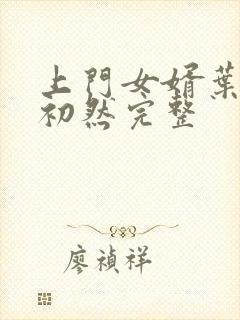 上門女婿葉
初然完整
廖禎祥